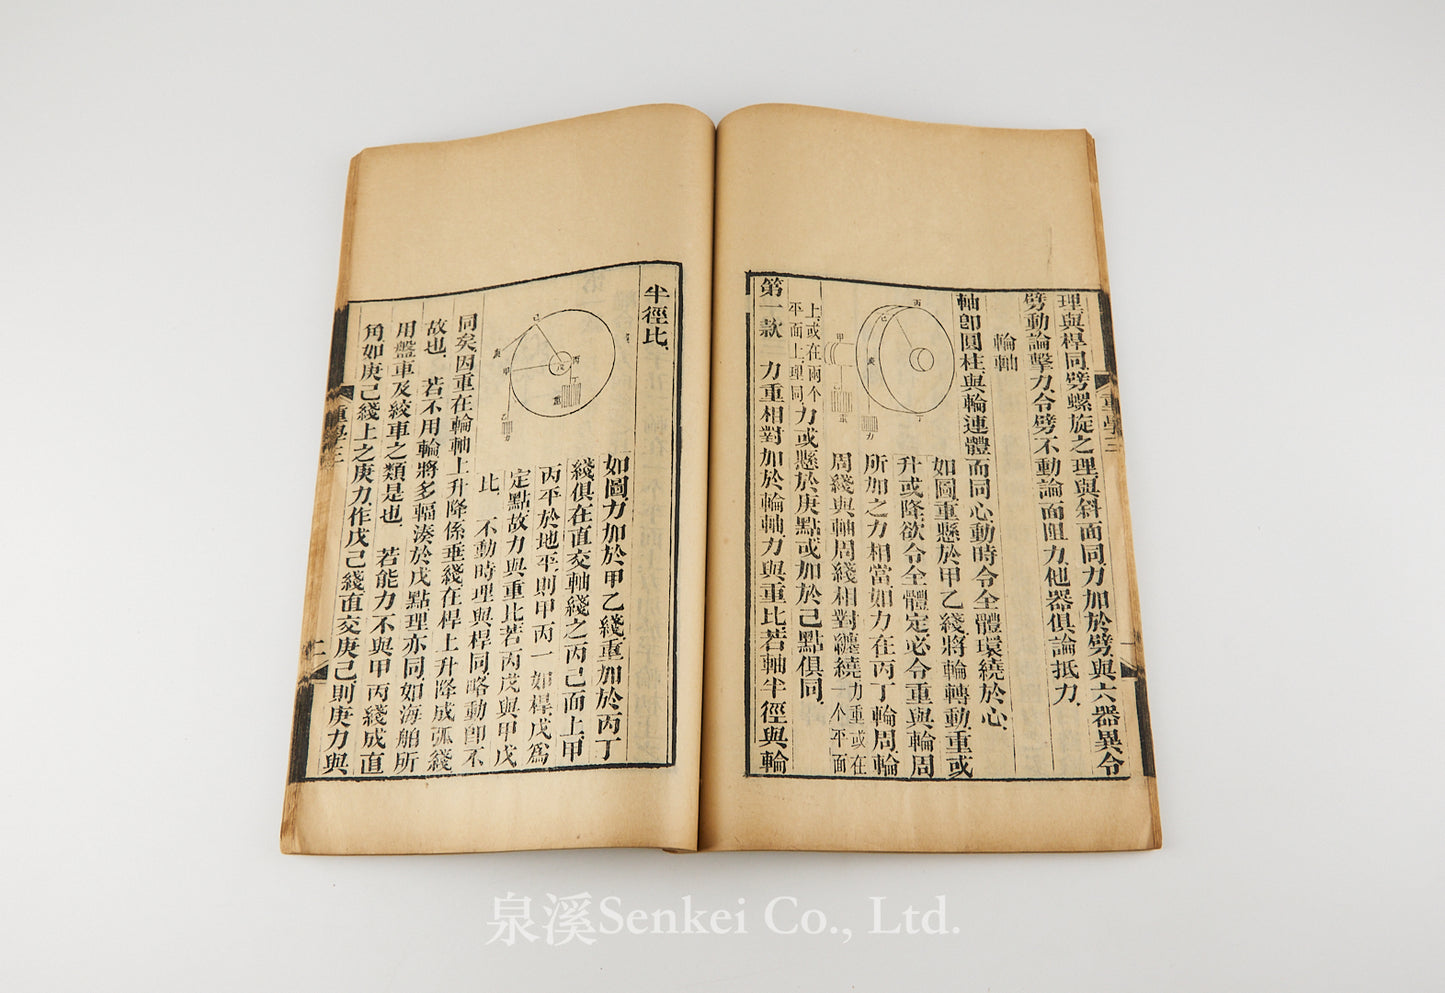 理與桿同劈螺旋之理與斜面同力加於劈與六器異令
劈動論擊力令劈不動論面阻力他器俱論抵力
輪軸
軸卽圓柱與輪連體而同心動時令全體環繞於心
如圖重懸於甲乙綫將輪轉動重或
升或降欲令全體定必令重與輪周
所加之力相當如力在丙丁輪周輪
周綫與軸周綫相對纏繞力重或在一个平面
上或在兩个平面上理同力或懸於庚點或加於己點俱同
第一款 力重相對加於輪軸力與重比若軸半徑與輪
半徑比
如圖力加於甲乙綫重加於丙丁
綫俱在直交軸綫之丙己面上甲
丙平於地平則甲丙一如桿戊爲
定點故力與重比若丙戊與甲戊
比 不動時理與桿同略動卽不
同矣因重在輪軸上升降係垂綫在桿上升降成弧綫
故也 若不用輪將多輻湊於戊點理亦同如海舶所
用盤車及絞車之類是也 若能力不與甲丙綫成直
角如庚己綫上之庚力作戊己綫直交庚己則庚力與
重學三
一
重學三
二
丙
己
甲
庚
乙
重
力
丁
己
庚
甲
丙
戊
重
乙
力
泉溪Senkei Co., Ltd.